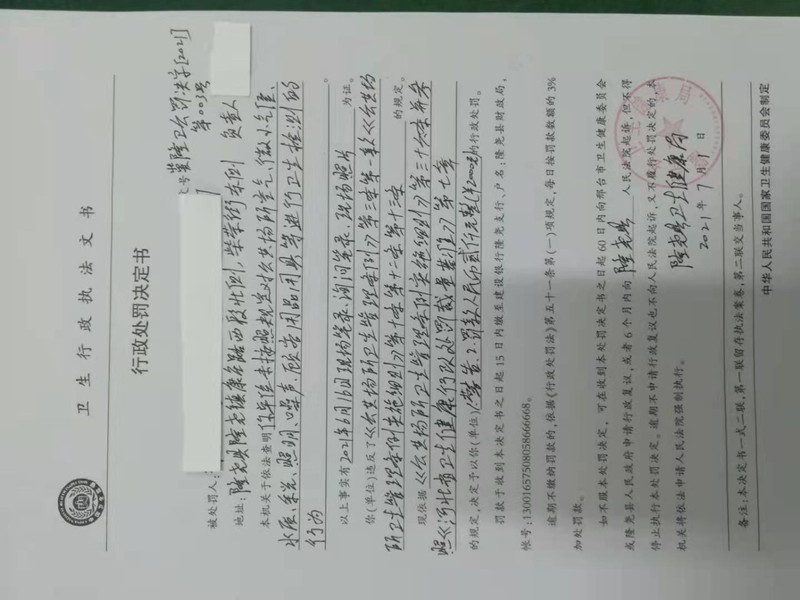 卫生行政执法文书
行政处罚决定书
隆卫公罚决字[2021]
第003号
被处罚人:
地址:隆尧县隆尧镇康庄路西段北侧,柴荣街东侧 负责人
本机关于依法查明你单位未按照规定对公共场所空气、微小气候、
水质、采光、照明、噪声、顾客用品用具等进行卫生检测的
行为
以上事实有2021年6月16日现场笔录、询问笔录、现场照片 为证。
你(单位)违反了《公共场所卫生管理条例》第三条第一款《公共场
所卫生管理条例实施细则》第十条第十一条第十三条 的规定。
现依据《公共场所卫生管理条例实施细则》第三十六条并参
照《河北省卫生健康行政处罚裁量基准》第七章
的规定,决定予以你(单位)1.警告 2.罚款人民币贰仟元整(¥2000元)的行政处罚。
罚款于收到本决定书之日起15日内缴至建设银行隆尧支行,户名:隆尧县财政局,
帐号:13001657508058666668。
逾期不缴纳罚款的,依据《行政处罚法》第五十一条第(一)项规定,每日按罚款数额的3%
加处罚款。
如不服本处罚决定,可在收到本处罚决定书之日起60日内向邢台市卫生健康委员会
或隆尧县人民政府申请行政复议,或者6个月内向 隆尧县 人民法院起诉,但不得
停止执行本处罚决定。逾期不申请行政复议也不向人民法院起诉,又不履行处罚决定的,本
机关将依法申请人民法院强制执行。
隆尧县卫生健康局
2021年7月1日
备注:本决定书一式二联,第一联留存执法案卷,第二联交当事人。
中华人民共和国国家卫生健康委员会制定